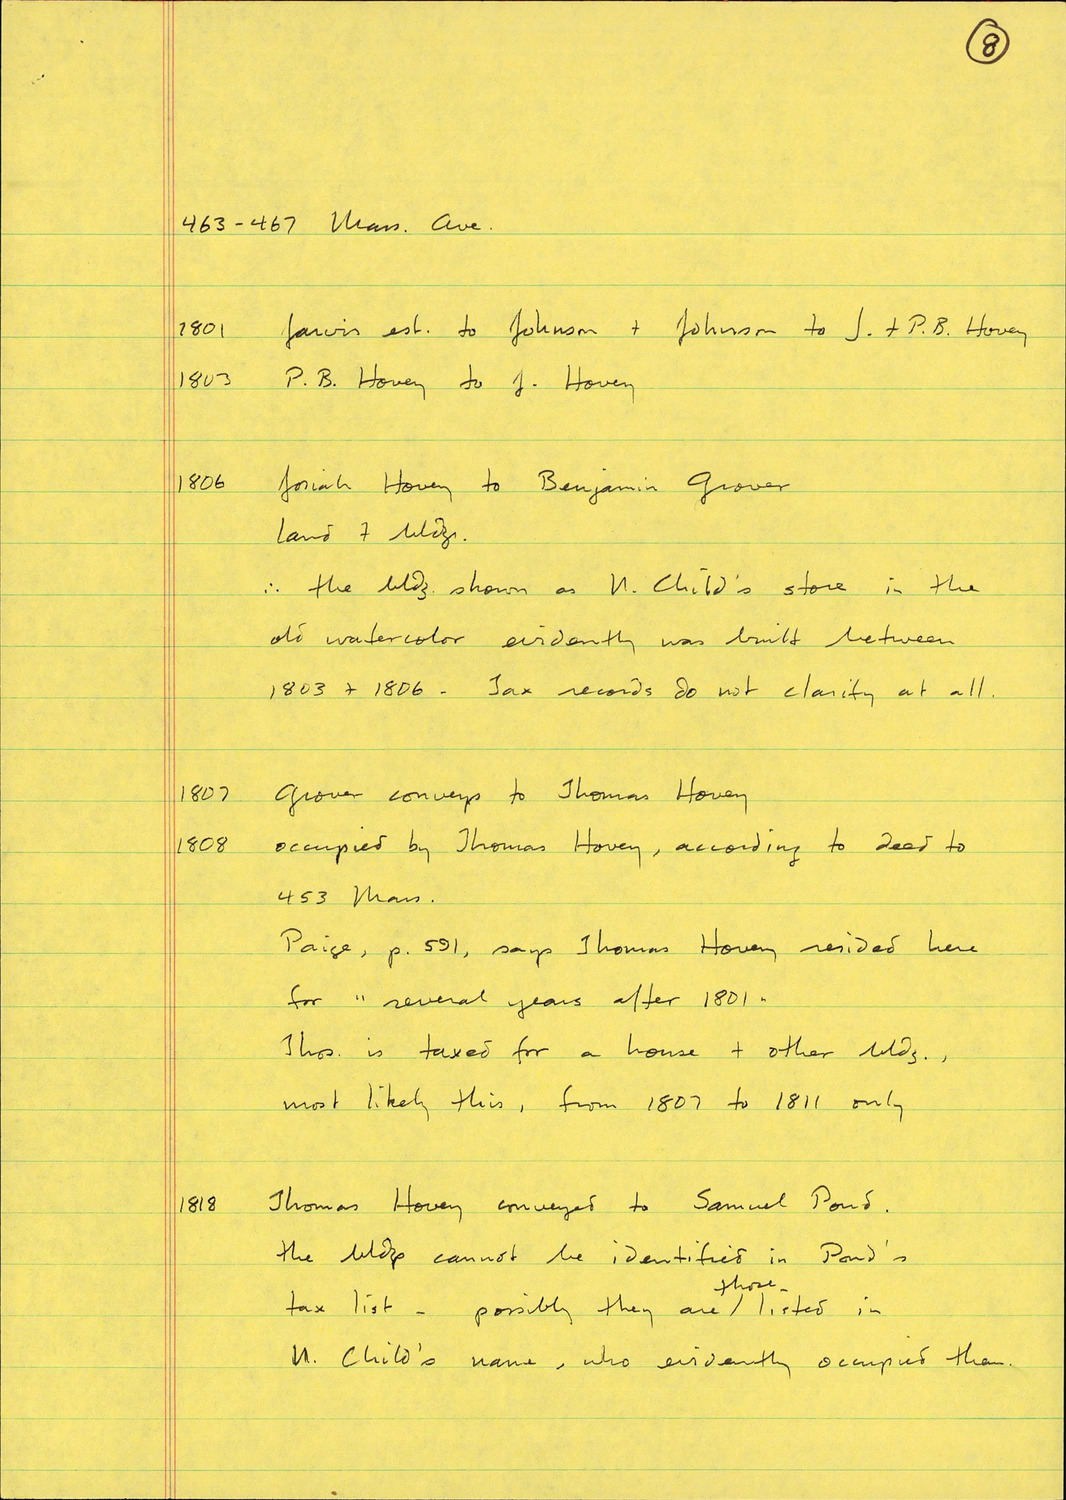 8
463-467 Mass. Ave.
1801 Jarvis est. to Johnson + Johnson to J. + P.B. Hovey
1803 P.B. Hovey to J. Hovey
1806 Josiah Hovey to Benjamin Grover
land + bldgs.
∴ the bldg. shown as N. Child's store in the
old watercolor evidently was built between
1803 + 1806 - Tax records do not clarify at all.
1807 Grover conveys to Thomas Hovey
1808 occupied by Thomas Hovey, according to deed to
453 Mass.
Paige, p. 591, says Thomas Hovey resided here
for "several years after 1801"
Thos. is taxed for a house + other bldg.,
most likely this, from 1807 to 1811 only
1818 Thomas Hovey conveyed to Samuel Pond.
the bldgs cannot be identified in Pond's
those
tax list - possibly they are / listed in
N. Child's name, who evidently occupied them.